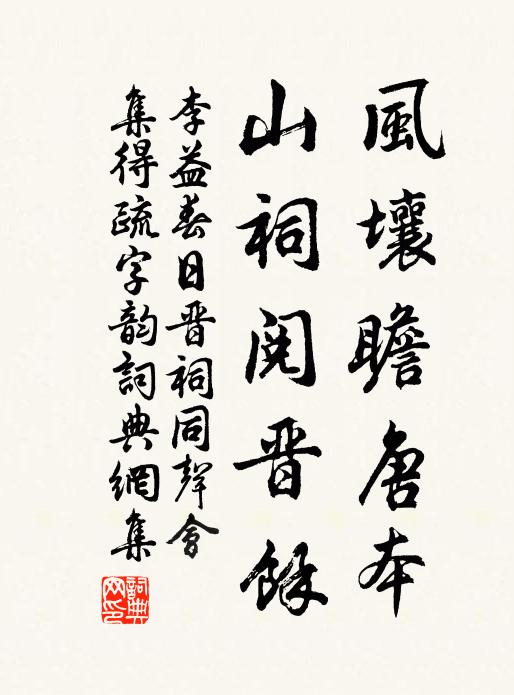 風壤瞻唐本
山祠閱晋餘
李益春日晋祠同聲會
集得疏字韵詞典網集
詞典網印